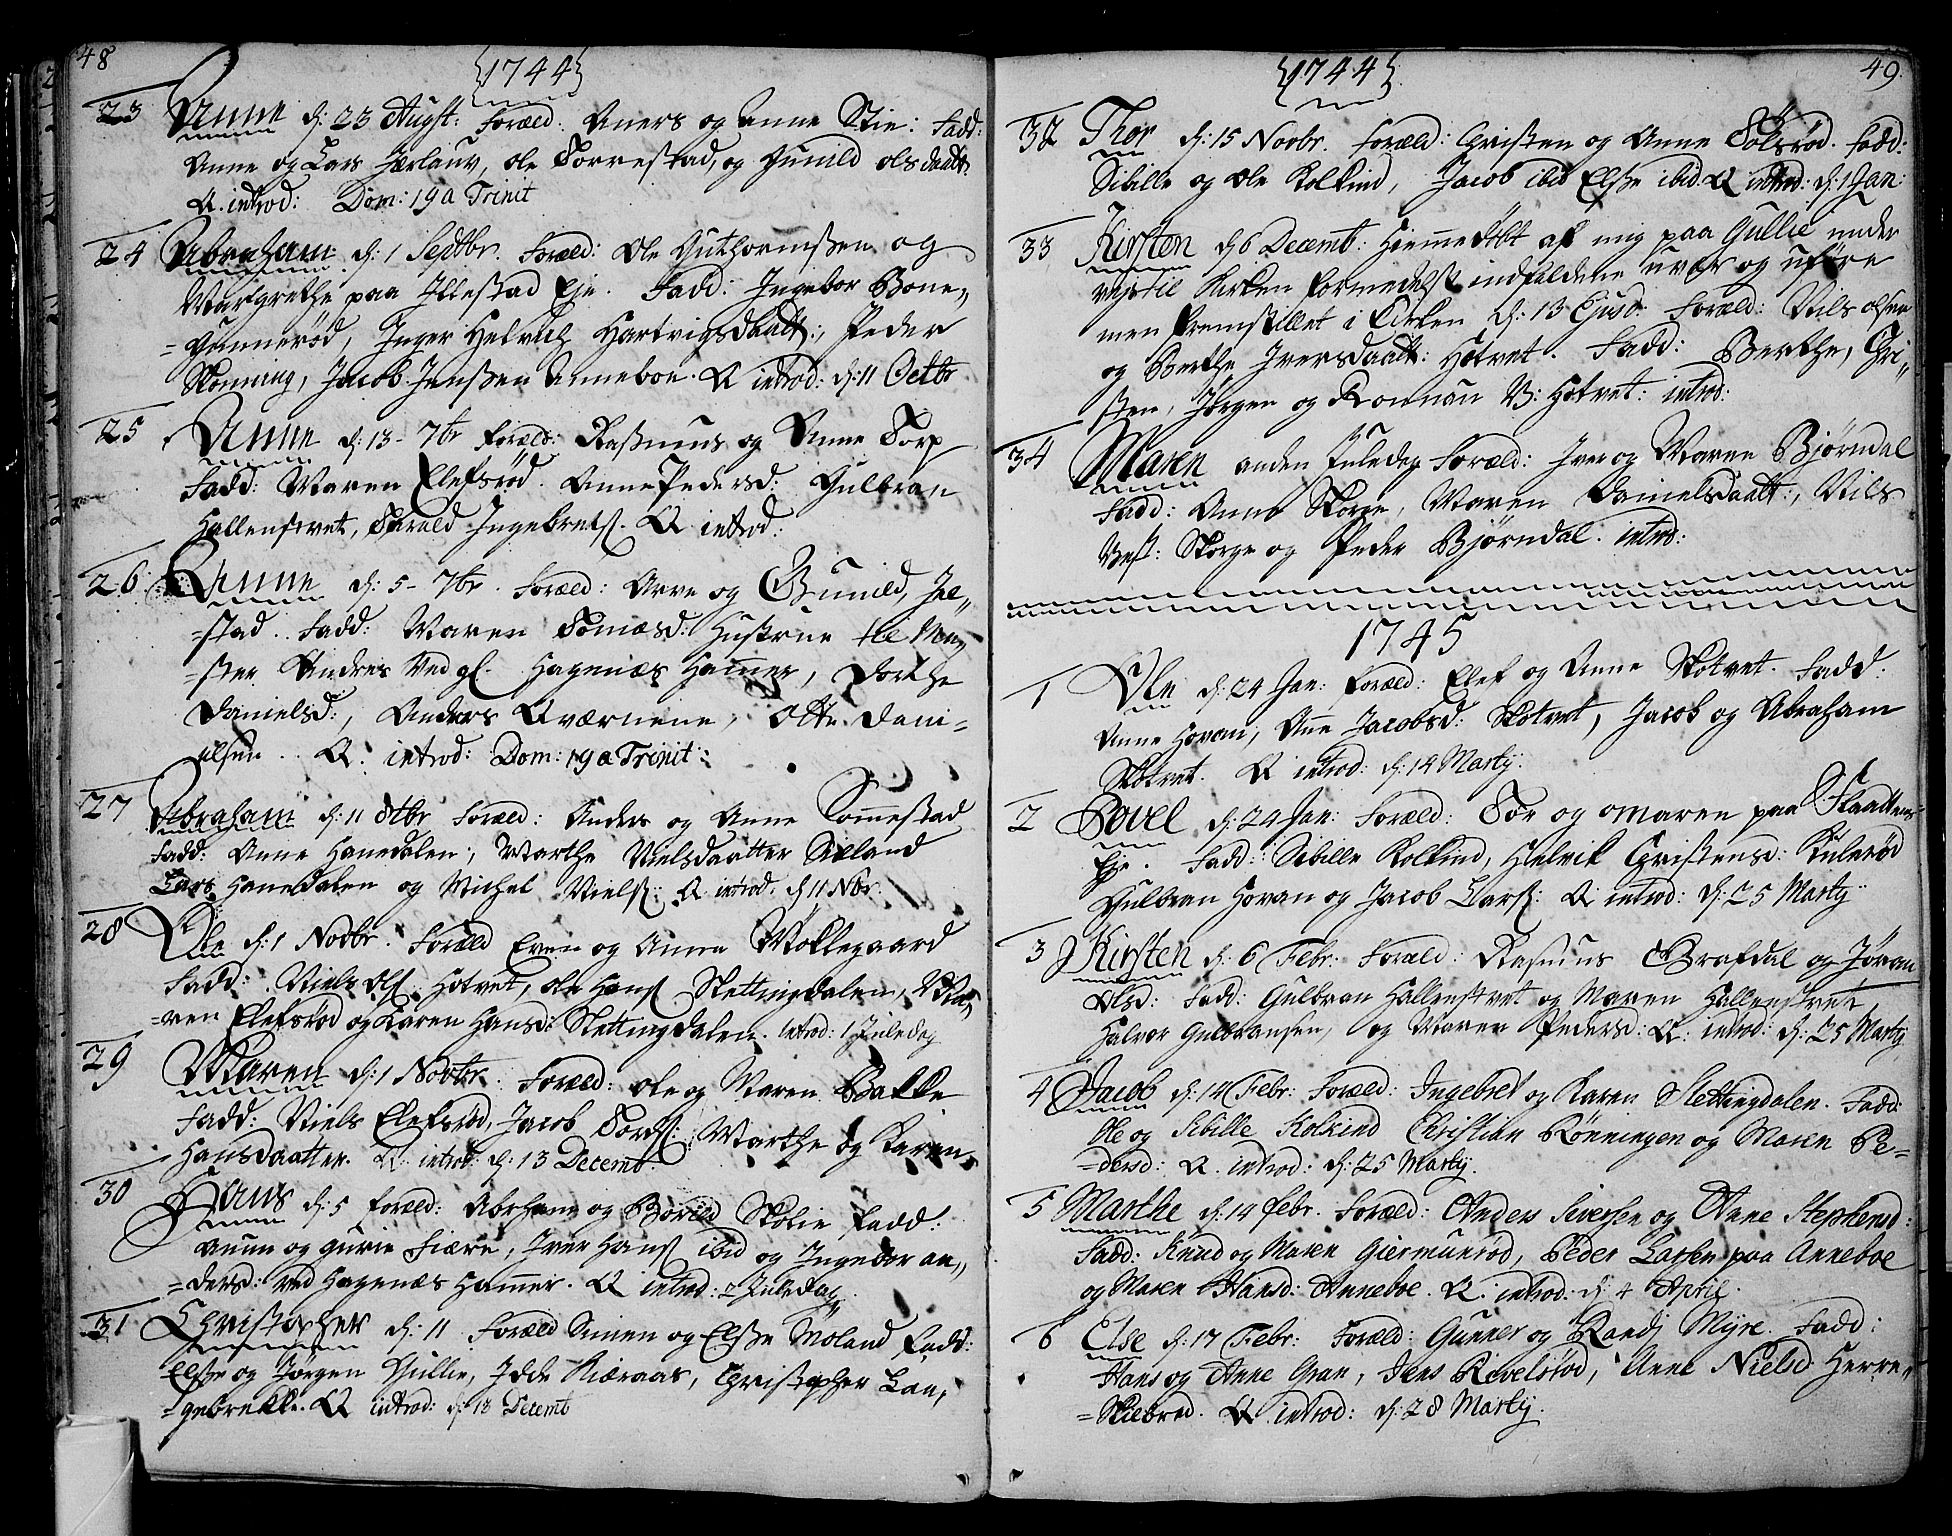 48
{1744}
23 Anne d: 23 Augst: Foræld. Aners og Anne Stie: Fadd:
Anne og Lars Jerlauv, ole Torrestad, og Gunild olsdaatt.
Q. introd: Dom: 19 a Trinit
24 Abraham d: 1 Septbr. Foræld: Ole Guthormsen og
Margrethe paa Illestad Eje. Fadd: Ingebor Bone„
=Gunnerød, Inger Helvich Hartvigsdaatt:, Peder
Skoning, Jacob Jenssen Anneboe. Q introd: d: 11 Octbr
25 Anne d: 13 - 7br Foræld: Rasmus og Anne Torp
Fadd: Maren Elefsrød. Anne Pedersd: Gulbran
Hallenstvet, Harald Ingebrets. Q introd:
26 Anne d: 5 - 7br. Foræld: Arne og Gunild, Jel„
=stad. Fadd: Maren Tomasd: Hustrue til Mey„
=ster Andres Ved gl. Hagenæs Hamer, Dorthe
Danielsd:, Anders Qværnene, Otte Dani=
elsen. Q. introd: Dom: 19 a Trinit:
27 Abraham d: 11 8tbr Foræld: Anders og Anne Tommestad
Fadd: Anne Hanedalen, Marthe Nielsdaatter Siland
Lars Hanedalen og Michel Niels: Q introd: d 11 Nbr
28 Ole d: 1 Novbr. Foræld Even og Anne Møklegaard
Fadd: Niels Ols: Hotvet, ole Hans Slettingdalen, Ma„
=ren Elefsrød og Karen Hansd: Slettingdalen. Introd: 1 Juledag
29 Maren d: 1 Novbr. Foræld: Ole og Maren Bakke
Fadd: Niels Elefsrød, Jacob Tors: Marthe og Karen
Hansdaatter. Q. introd: d: 13 Decemb:
30 Hans d: 5 foræld: Abrham og Borild Skolie fadd:
Anun og gurie Fiære, Iver Hans ibid og Ingebor an„
=dersd: ved Hagenæs Hamer. Q introd: 2 Juledag
31 Christopher d: 11 Foræld Simen og Elsse Moland Fadd:
Elsse og Jørgen Gullie, Idde Kiæraas, Christopher Lan„
=gebrekke. Q introd: d: 13 Decemb
{1744}
49
32 Thor d: 15 Novbr. Foræld: Christen og Anne Tolsrød. Fadd:
Sibille og Ole Kolkind, Jacob ibid Elsse ibid. Q introd: d: 1 Jan:
33 Kirsten d 6 Decemb: Hiemedøbt af mig paa Gullie under
vejs til Kirken formedelst indfaldene uveir og uføre
men fremstillet i Kirken d: 13 Ejusd. Foræld: Nils olsen
og Berthe Iversdaatt: Hotvet. Fadd: Berthe, Cri„
sten, Jørgen og Romnau N: Hotvet: introd:
34 Maren anden Juledag Foræld: Iver og Maren Bjørndal
Fadd: Anne Skorge, Maren Danielsdaatt:, Nils
Vest: Skorge og Peder Bjørndal. introd:
1745
1 Ole d: 24 Jan: foræld: Elef og Anne Skotvet. Fadd:
Anne Hovan, Ane Jacobsd: Skotvet, Jacob og Abraham
Skotvet. Q introd: d: 14 Martÿ.
2 Bovel d: 24 Jan: Foræld: Tor og Maren paa
Eje. Fadd: Sibille Kolkind, Helvik Christensd: Kulerød
Gulbran Hovan og Jacob Lars: Q introd: d: 25 Martÿ
3 Kirsten d: 6 Febr: Foræld: Rasmus Grafdal og Jøran
Olsd: Fadd: Gulbran Hallenstvet og Maren Hallenstvet,
Halvor Gulbransen, og Maren Pedersd: Q. introd: d: 25 Martÿ
4 Jacob d: 14 Febr: Foræld: Ingebret og Karen Slettingdalen. Fadd:
Ole og Sibille Kolkind Christian Rønningen og Maren Pe=
=dersd: Q. introd: d: 25 Martÿ.
5 Marthe d: 14 febr. Foræld: Anders Siversen og Anne Stephensd:
Fadd: Knud og Maren Giermundrød, Peder Larsen paa Anneboe
og Maren Hansd: Anneboe. Q. introd: d: 4 April.
6 Else d: 17 Febr: Foræld: Gunner og Randj Myre. Fadd:
Hans og Anne Gran, Jens Revelsrød, Anne Nielsd: Herre„
=Skiebred. Q introd: d: 28 Martÿ.